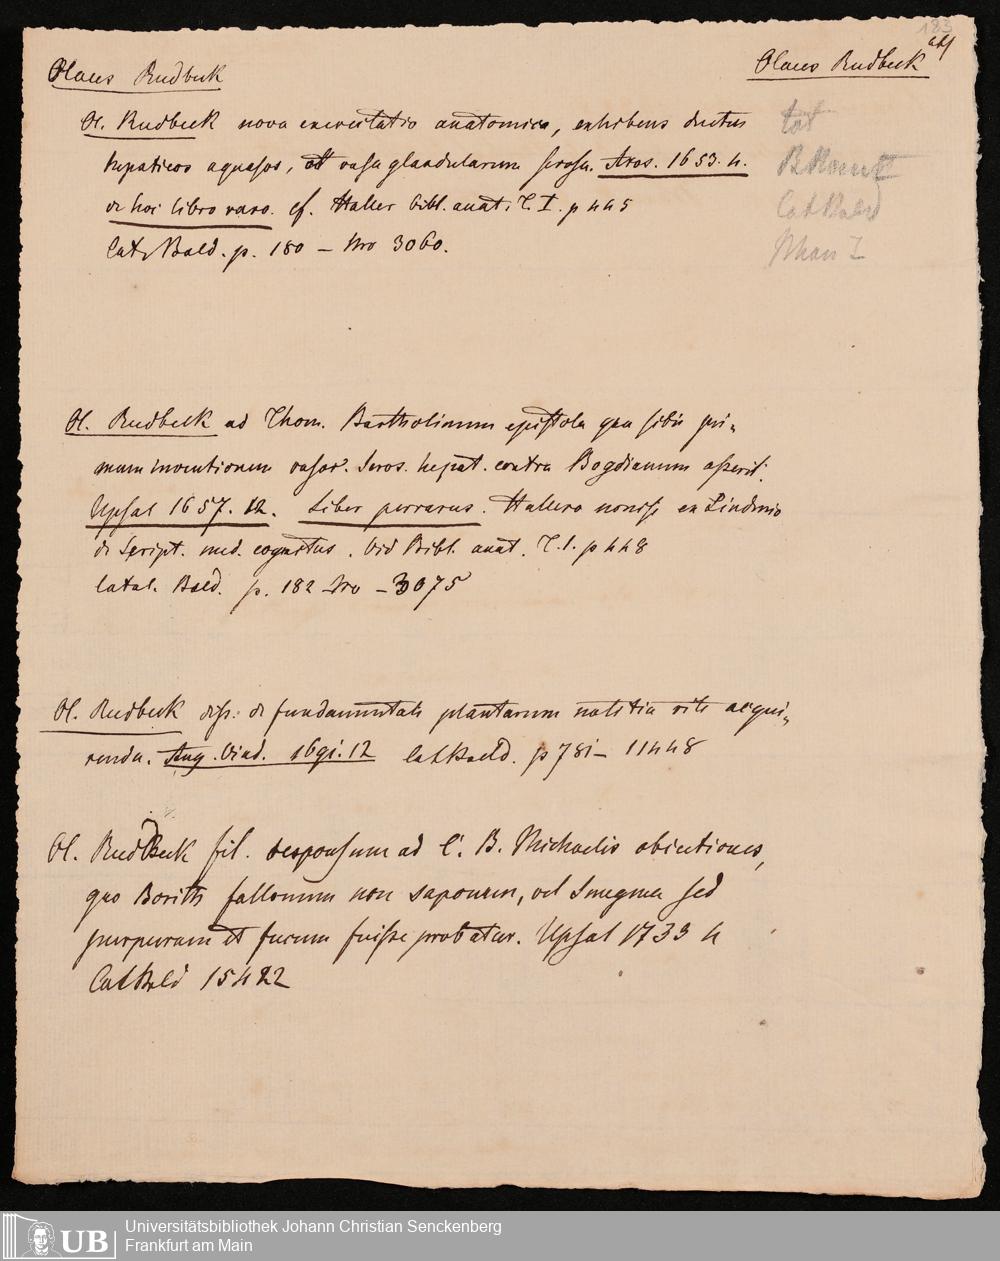 183
Olaus Rudbeck
Olaus Rudbeck
Ol. Rudbeck nova exercitatio anatomica, exhibens ductus
hepaticos aquosos, et vasa glandularum serosa. Aros. 1653. 4.
de hoc libro raro. cf. Haller bibl. anat. T. I. p 445
Cat. Bald. p. 180 – Nro 3060.
tot
Cat Bald
Ol. Rudbeck ad Thom. Bartholinum epistola qua sibi pri-
mum inventionem vasor. Seros. hepat. contra Bogdanum asserit.
Upsal 1657. 12. Liber perrarus. Hallero nonnisi ex Lindenio
de Script. med. cognitus. Vid Bibl. anat. T. I. p 448
Catal. Bald. p. 182 Nro – 3075
Ol. Rudbeck diss. de fundamentali plantarum notitia rite acqui-
renda. Aug. Vind. 1691. 12 Cat Bald. p 781 – 11448
Ol. Rudbeck fil. responsum ad C. B. Michaelis obiectiones,
quo Borith fullonum non saponem, vel Smegma sed
purpuram et fucum fuisse probatur. Upsal 1733 4
Cat Bald 15422
UB
Universitätsbibliothek Johann Christian Senckenberg
Frankfurt am Main